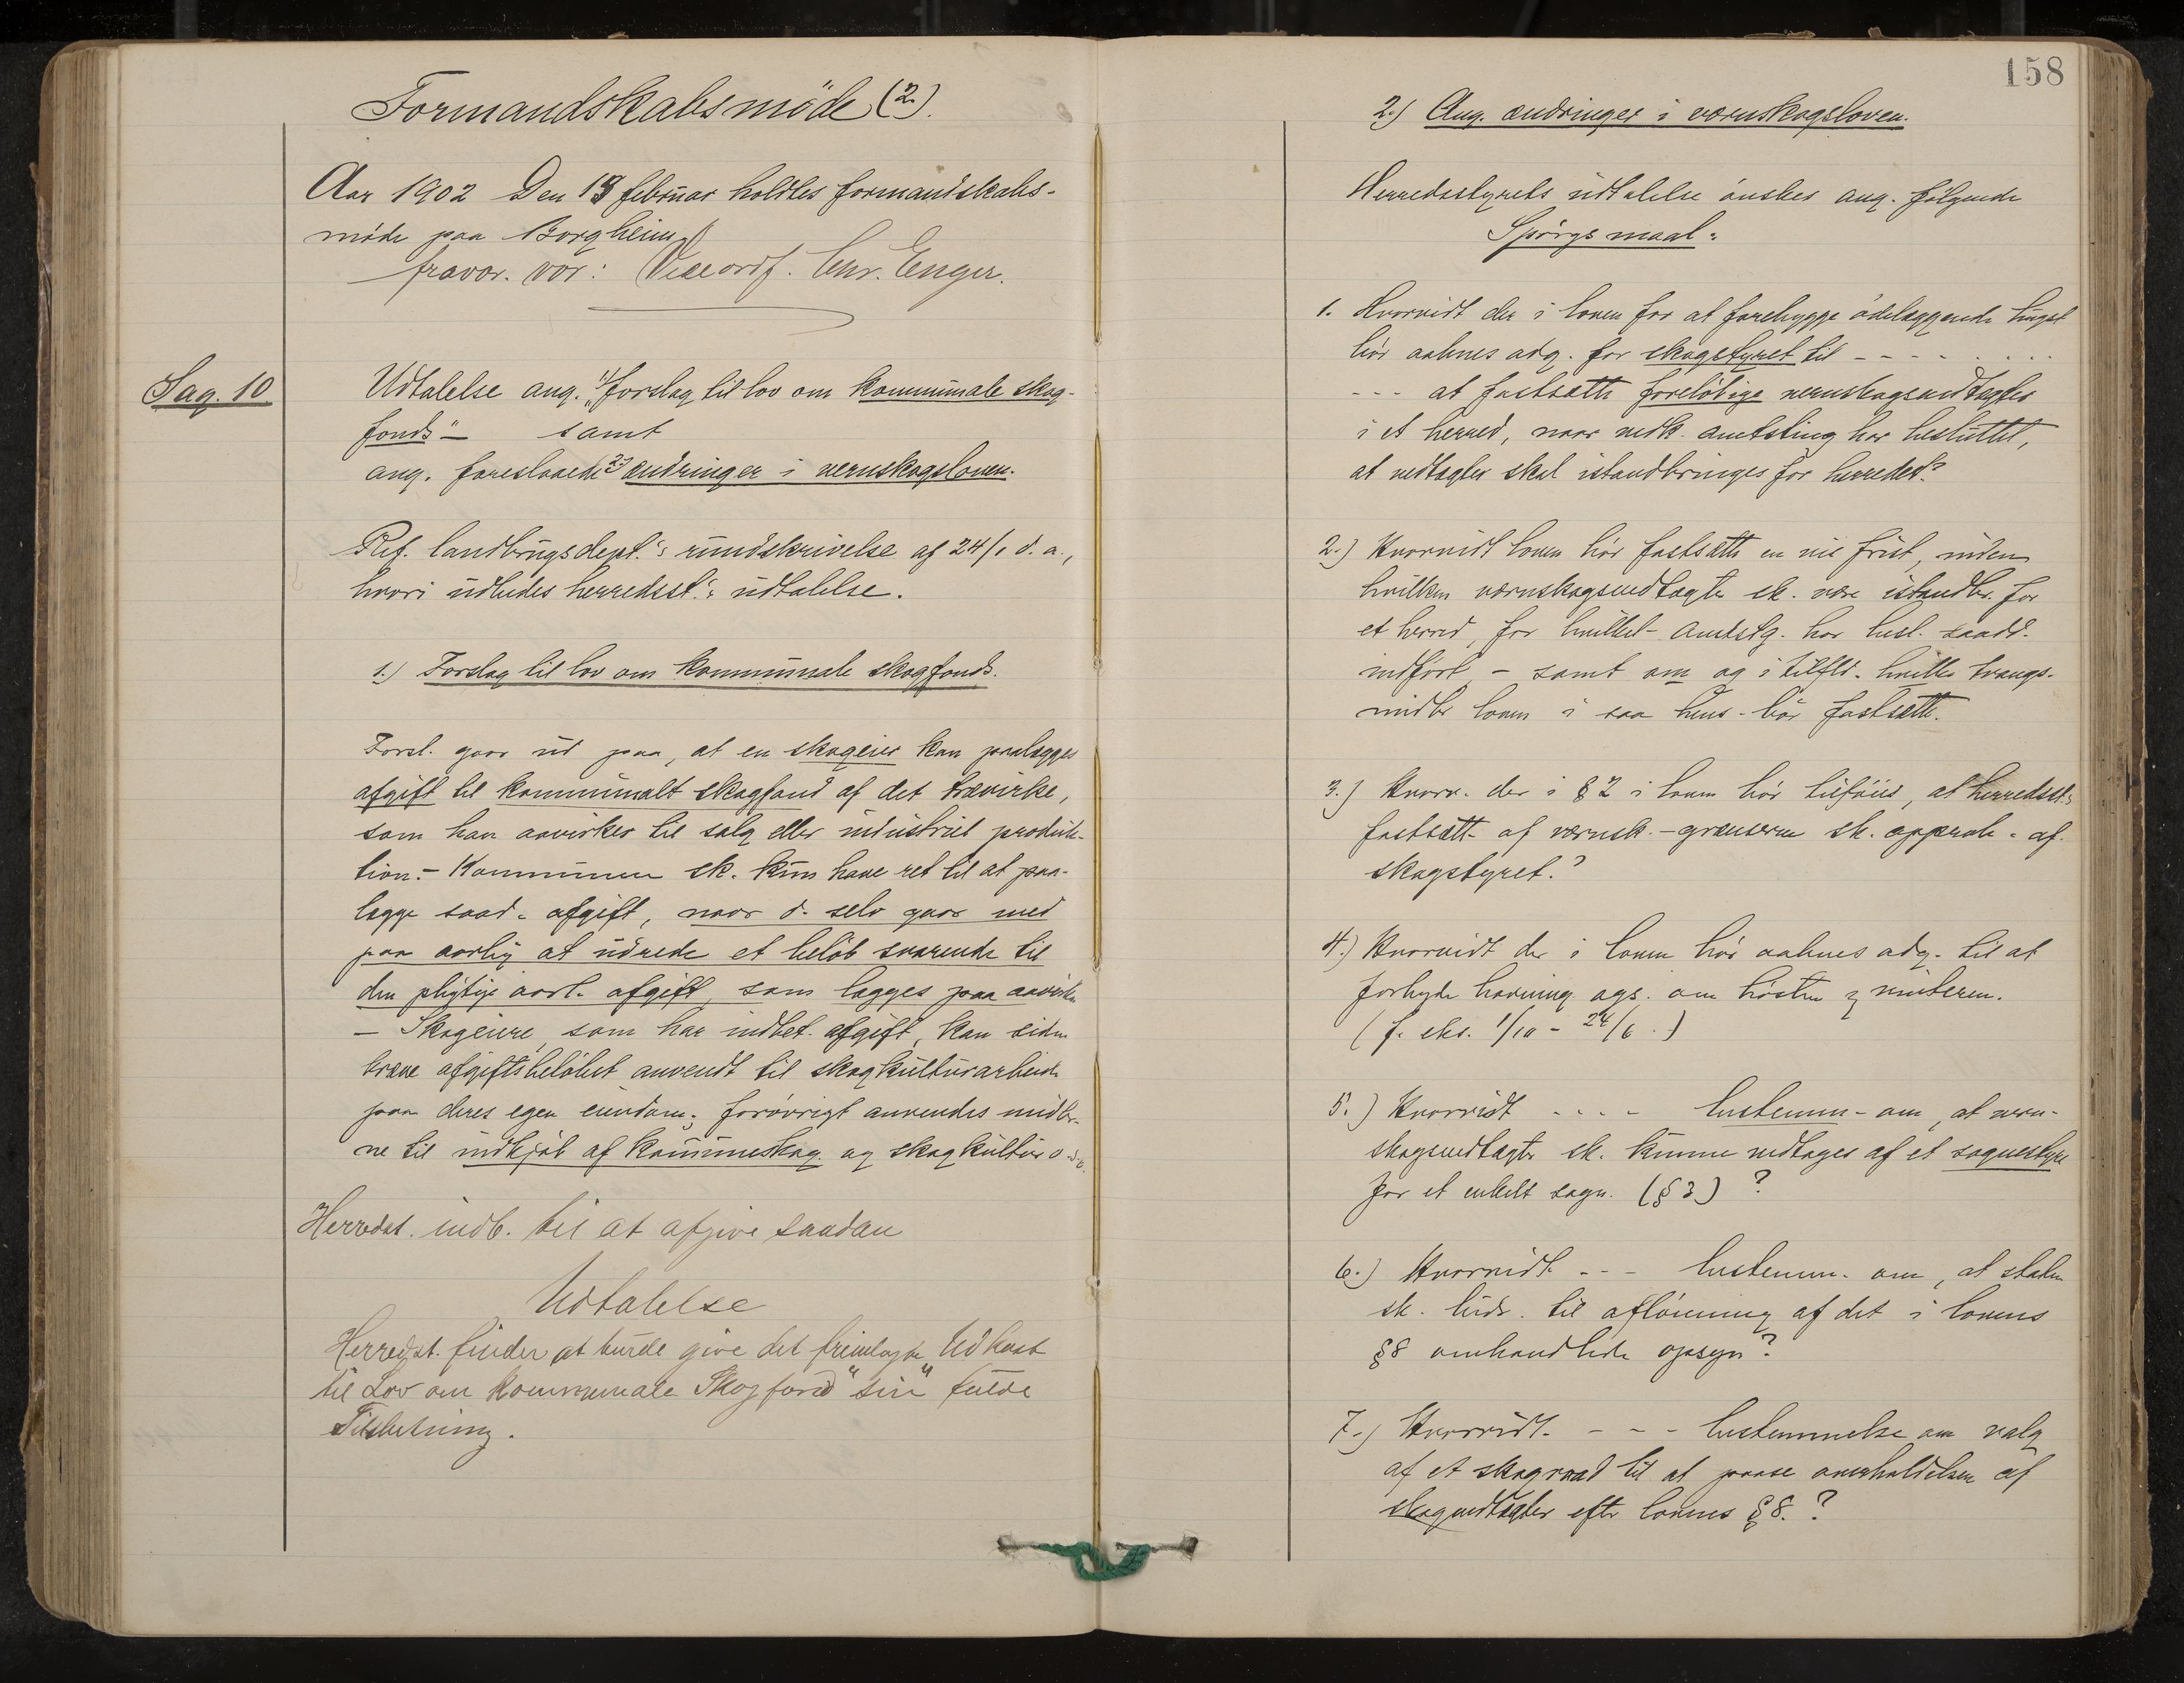 Formandskabsmöde (2.)
Aar 1902 Den 18 februar holdtes formandskabs-
möde paa Borgheim
fravær. var: Viceordf. Chr. Enger.
Sag. 10
Udtalelse ang. 1) "forslag til lov om kommunale skog-
fonds" – samt
ang. foreslaaede 2) ændringer i vernskogsloven.
Ref. landbrugsdept.'s rundskrivelse af 24/1 d. a.,
hvori udbedes herredsst.'s udtalelse.
1.) Forslag til lov om kommunale skogfonds.
Forsl. gaar ud paa, at en skogeier kan paalægges
afgift til kommunalt skogfond af det trævirke,
som han aavirker til salg eller industriel produk-
tion. – Kommunen sk. kun have ret til at paa-
lægge saad. afgift, naar d. selv gaar med
paa aarlig at udrede et beløb svarende til
den pligtige aarl. afgift, som lægges paa aavirke
– Skogeiere, som har indbet. afgift, kan siden
kræve afgiftsbelöbet anvendt til skogkulturarbeide
paa deres egen eiendom; forövrigt anvendes midler-
ne til indkjöb af kommuneskog og skogkultur o.s.v.
Herredst. indb. til at afgive saadan
Udtalelse
Herredst. finder at burde give det fremlagte Udkast
til Lov om kommunale Skogfond" sin fulde
Tilslutning.
158
2.) Ang. ændringer i værnskogsloven.
Herredsstyrets udtalelse önskes ang. fölgende
Spörgsmaal:
1. Hvorvidt der i loven for at forebygge ödelæggende hugst
bör aabnes adg. for skogstyret til - - - - - - - -
- - - at fastsætte forelöbige vernskogsvedtægter
i et herred, naar vedk. amtsting har besluttet,
at vedtægter skal istandbringes for herredet?
2.) Hvorvidt loven bör fastsætte en vis frist, inden
hvilken værnskogsvedtægter sk. være istandbr. for
et herred, for hvilket amtstg. har besl. saadd.
indfört – samt om og i tilfld. hvilke tvangs-
midler loven i saa hens. bör fastsætte.
3.) Hvorv. der i § 2 i loven bör tilföies, at herredsst.'s
fastsætt. af værnsk.-grænserne sk. approb. af
skogstyret?
4.) Hvorvidt der i loven bör aabnes adg. til at
forbyde havning ogs. om hösten & vinteren.
(f. eks. 1/10 - 24/6.)
5.) Hvorvidt - - - - bestemm. om, at vern-
skogsvedtægter sk. kunne vedtages af et sognestyre
for et enkelt sogn. (§ 3) ?
6.) Hvorvidt - - - bestemm. om, at staten
sk. bidr. til aflönning af det i lovens
§ 8 omhandlede opsyn?
7.) Hvorvidt - - - bestemmelse om valg
af et skograad til at paase overholdelsen af
skogvedtægter efter lovens § 8. ?